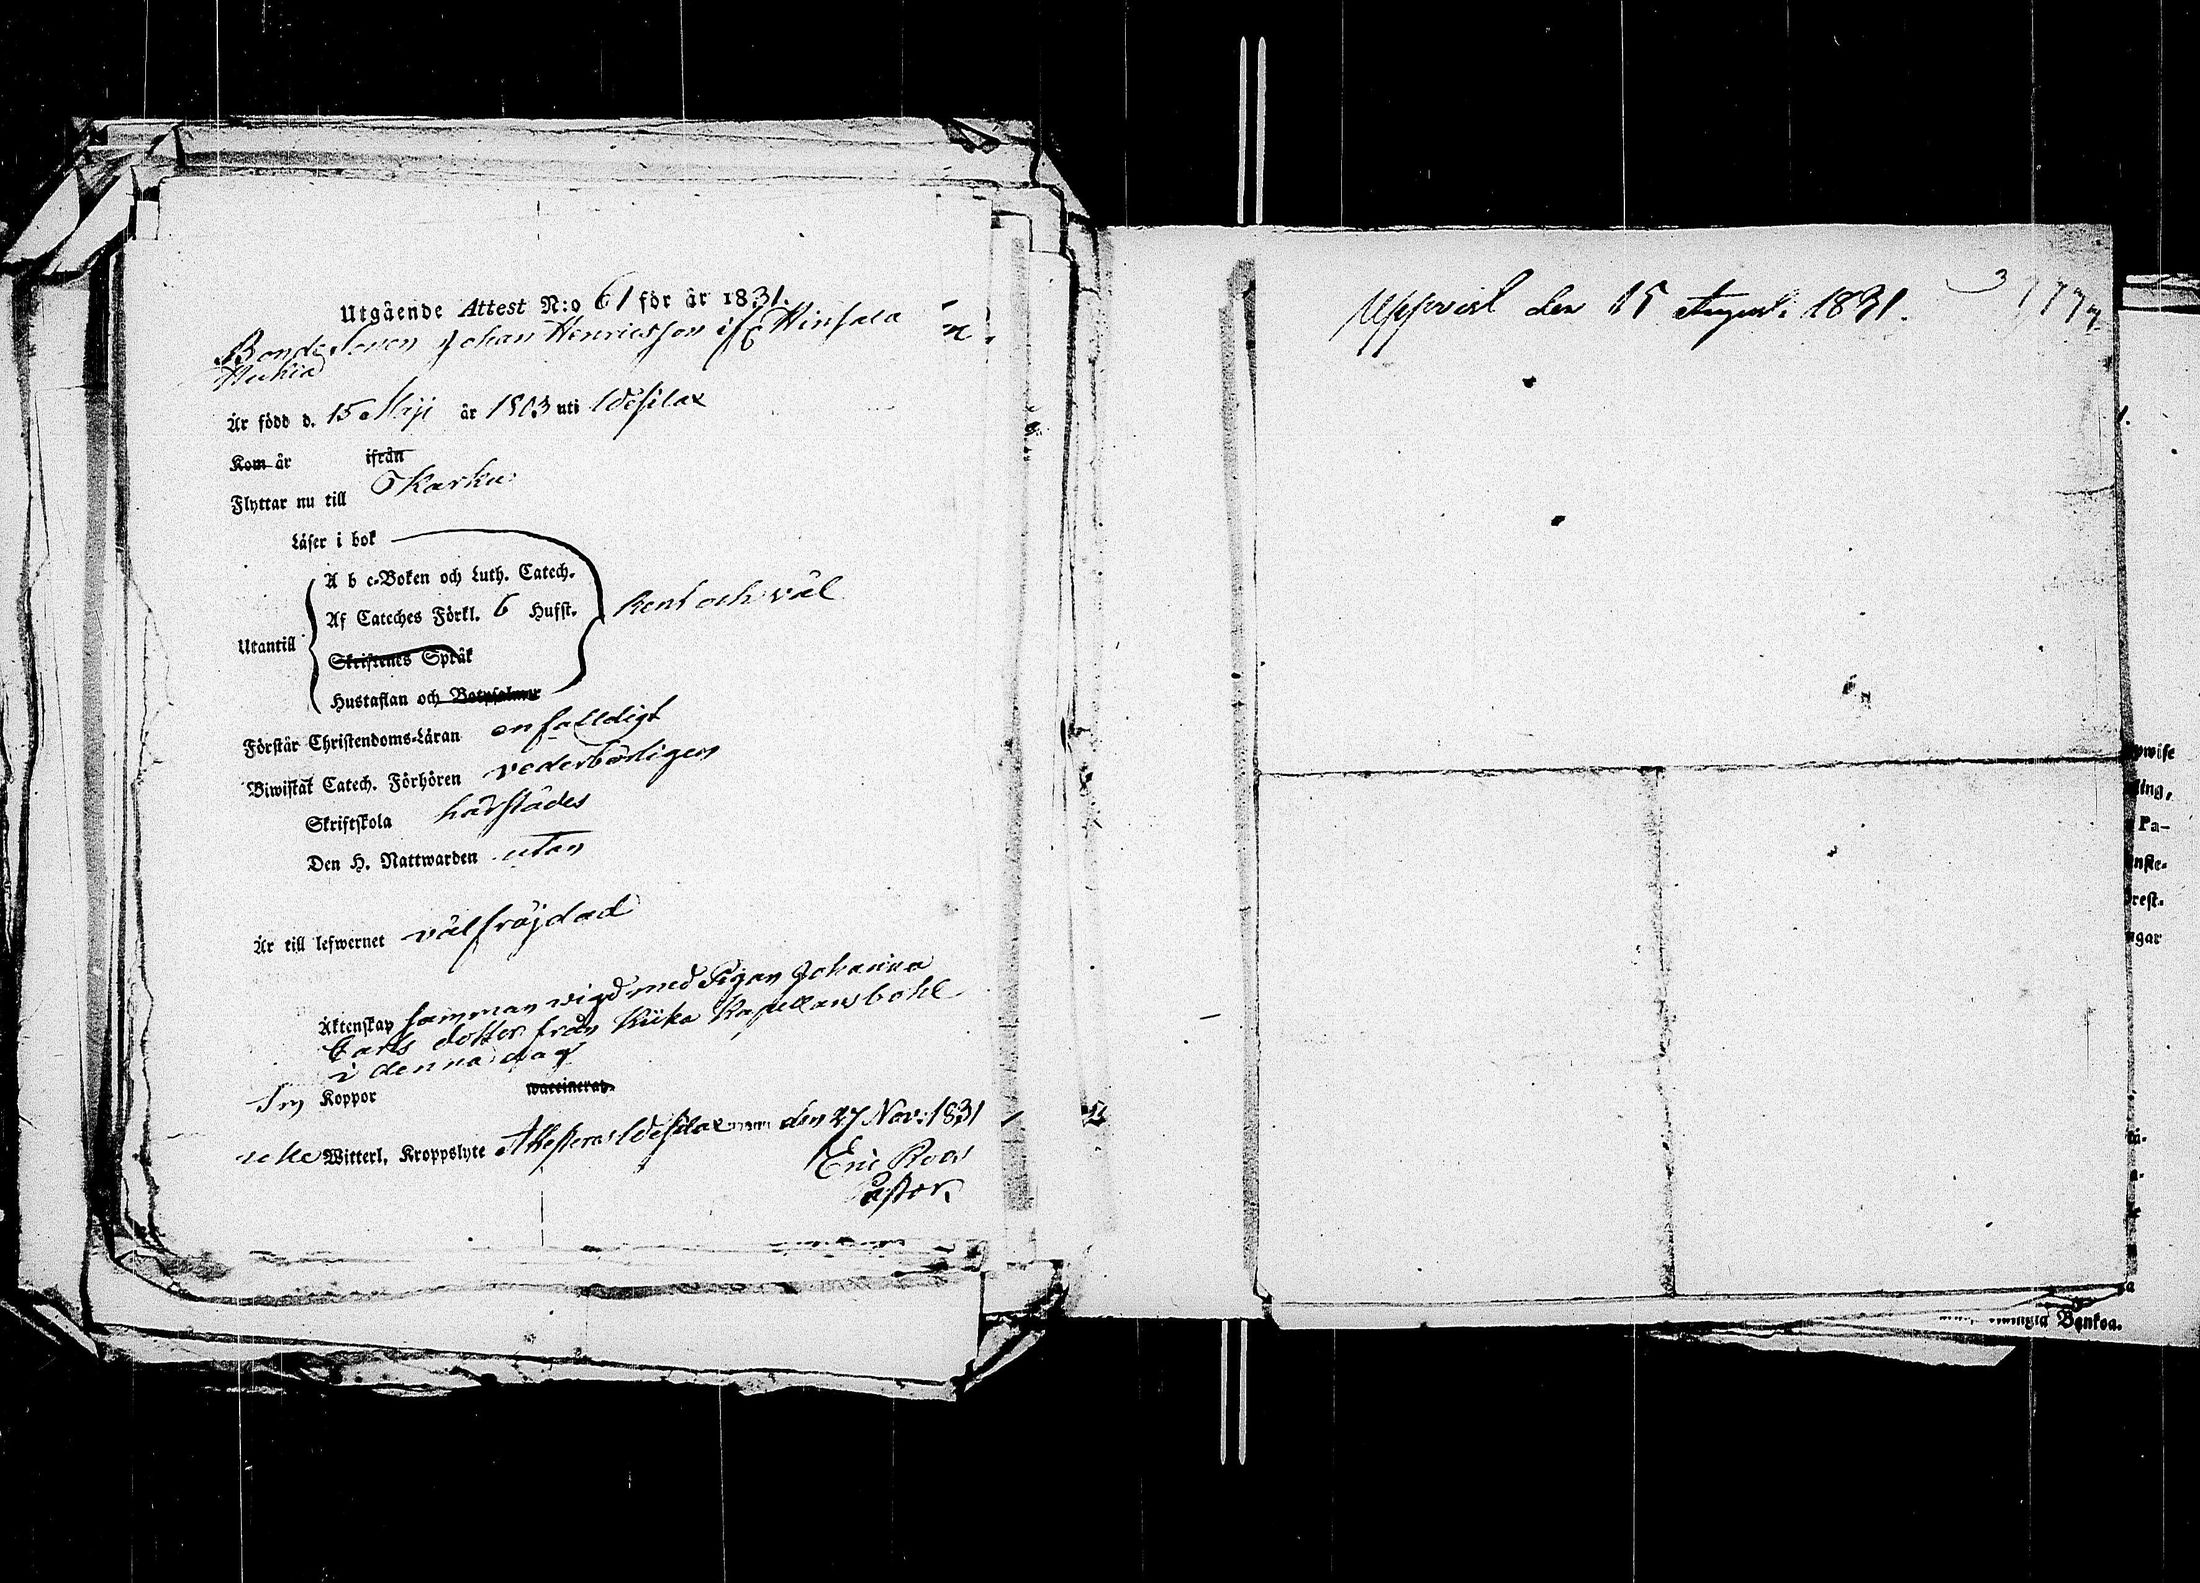 Utgående Attest N:o 61 för år 1831.
Bonde Sonen Johan Henricsson ifr Hinsala
Är född d. 15 Maji år 1803 uti Wesilax
Kom år ifrån
Flyttar nu till Karku
Läser i bok
A b c-Boken och Luth. Catech.
Af Cateches Förkl. 6 Hufst.
Utantill
Skriftenes Språk
Hustaflan och Botpsalmer
rent och väl
Förstår Christendoms-Läran enfalldigt
Biwistat Catech. Förhören vederbörligen
Skriftskola härstädes
Den H. Nattwarden utan
Är till lefwernet välfräjdad
Äktenskap samman vigd med Pigan Johanna
Carls dotter från Kiika Kapellansbohl
i denna dag
Koppor waccinerad.
Witterl. Kroppslyte Attesteras Wesilax den 27 Nov: 1831
Eric Roos
Pastor.
Uppvist den 15 August. 1831.
wise
ling,
Pa-
nste-
rest-
gar
Bankoa.